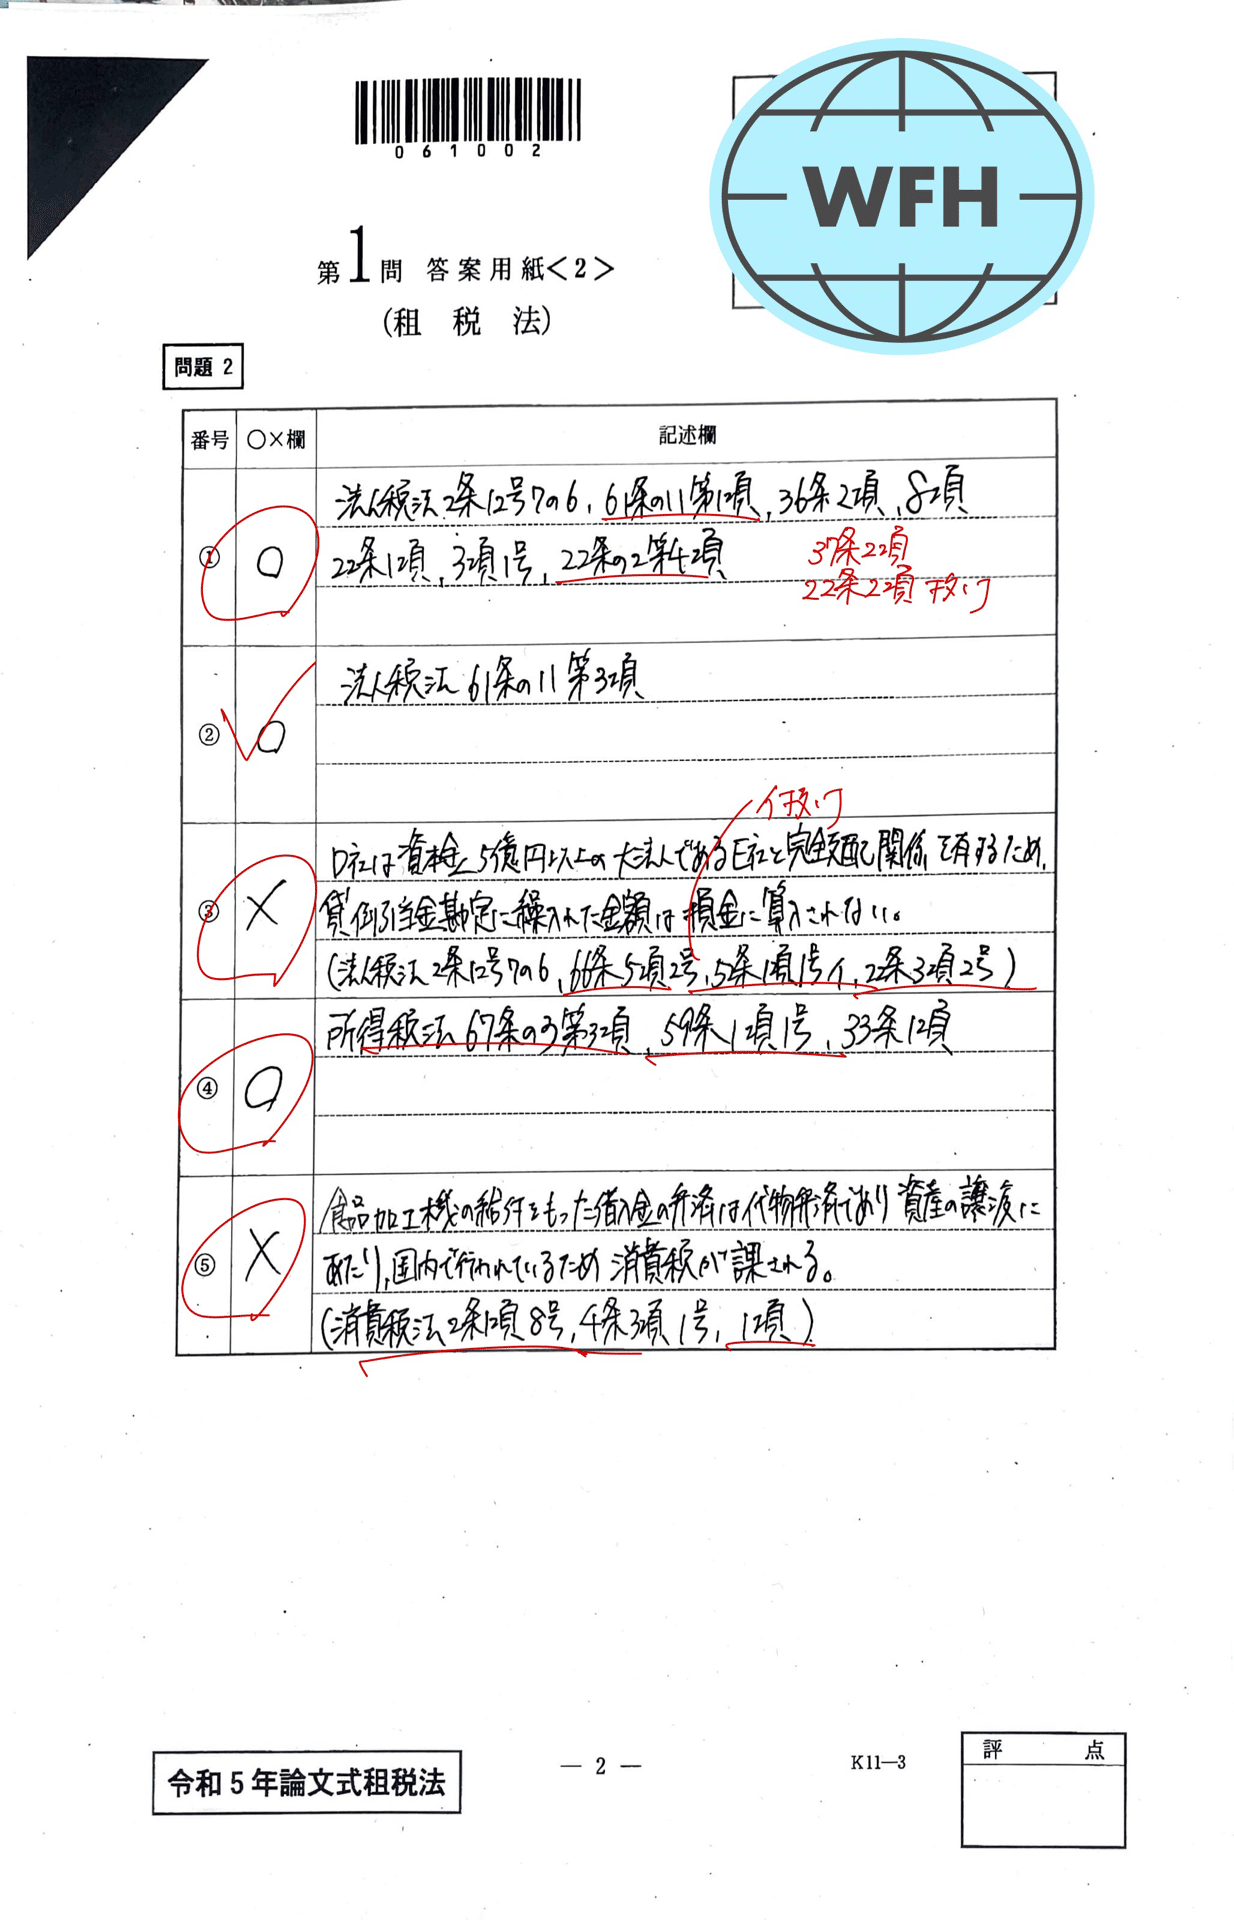 061002
WFH
第1問 答案用紙<2>
(租 税 法)
問題 2
番号 ○×欄 記述欄
法人税法2条12号7の6, 61条の11第1項, 36条2項, 8項
① ○ 22条1項, 3項1号, 22条の2第4項
37条2項
22条2項 抜け
法人税法 61条の11第3項
② ○
イ抜け
D社は資本金5億円以上の大法人であるE社と完全支配関係を有するため,
③ × 貸倒引当金勘定に繰入れた金額は損金に算入されない。
(法人税法2条12号7の6, 66条5項2号, 52条1項1号イ, 22条3項2号)
所得税法 67条の3第3項, 59条1項1号, 33条1項
④ ○
食品加工機の給付をもった借入金の弁済は代物弁済であり資産の譲渡に
⑤ × あたり, 国内で行われているため消費税が課される。
(消費税法2条1項8号, 4条3項1号, 1項)
令和5年論文式租税法
— 2 —
K11—3
評 点